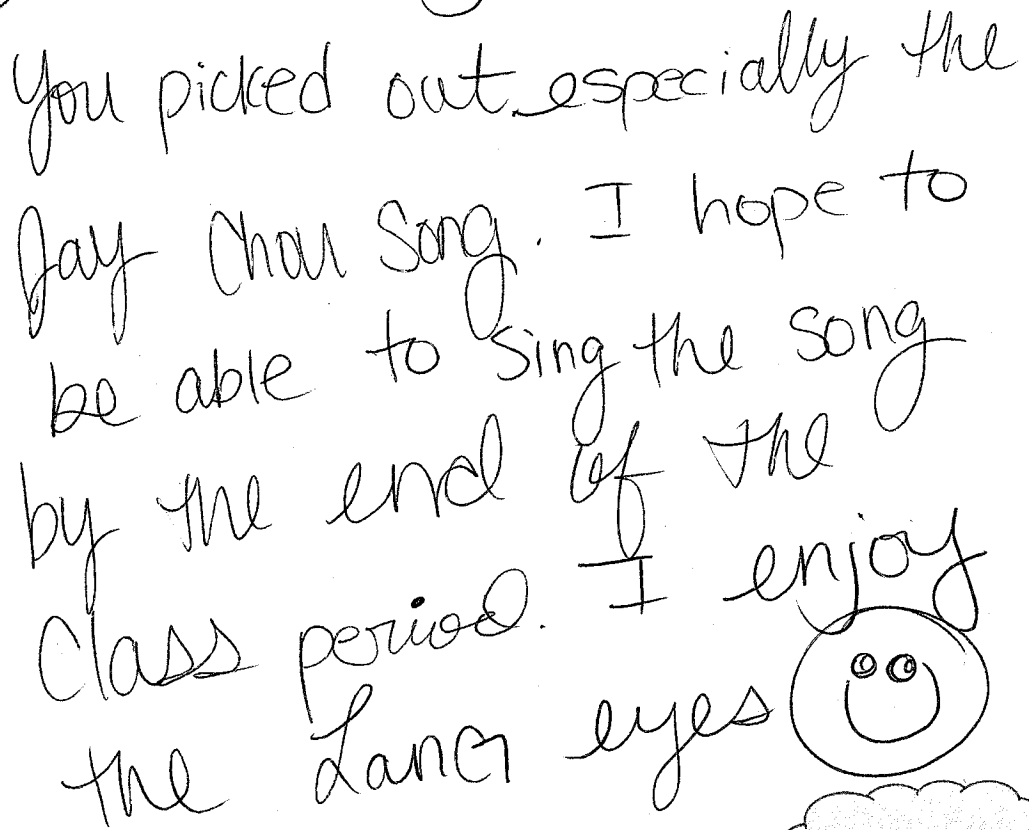 you picked out especially the
Jay Chou Song. I hope to
be able to sing the song
by the end of the
Class period. I enjoy
the eyes